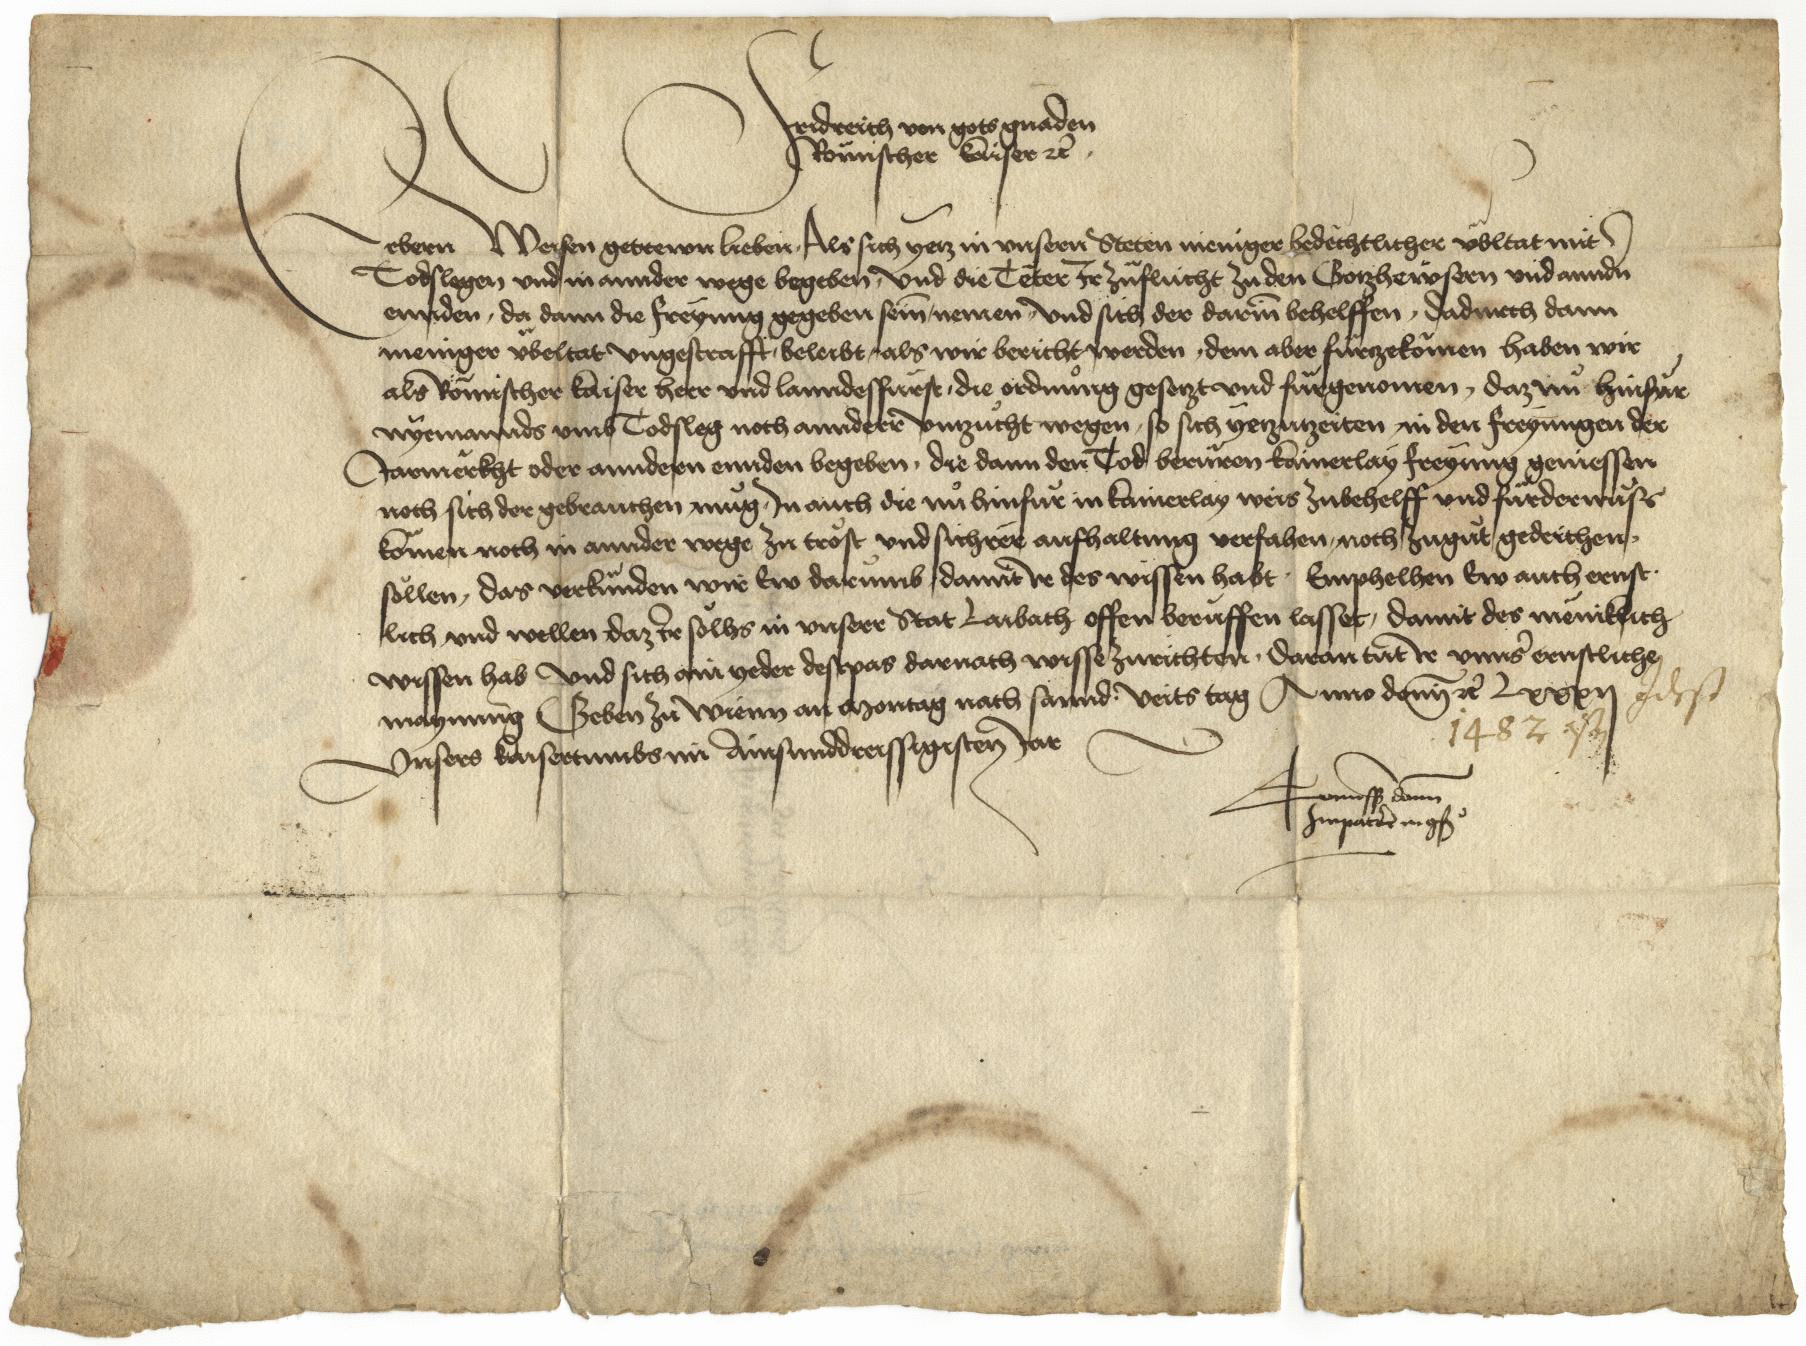 Fridreich von gots gnaden
Römischer kaiser etc.
Erbern Weisen getrewn lieben. Als sich yetz in unsern Steten meniger bedechtlicher übltat mit
Todslegen und in annder wege begeben, und die Teter Ir zuflucht zu den Gotzhewsern und anndn
ennden, da dann die freyung gegeben sein, nemen, und sich der darin behelffen, dadurch dann
meniger übeltat ungestrafft beleibt, als wir bericht werden, dem aber fürtzekomen haben wir
als Römischer kaiser herr und lanndesfürst, die ordnung gesetzt und fürgenomen, daz nu hinfür
nyemannds umb Todsleg noch annderr unzucht wegen, so sich yetzuzeiten in den freyungen der
Jarmerkht oder anndern ennden begeben, die dann den Tod berüren kainerlay freyung geniessen
noch sich der gebrauchen mug, In auch die nu hinfür in kainerlay weis zubehelff und fürdernuss
komen noch in annder wege zu trost und sichrer aufhaltung verfahen, noch zugut gedeichen
sollen, das verkünden wir Ew darumb, damit ir des wissen habt. Emphelhen Ew auch ernst-
lich und wellen daz ir solhs in unserr Stat Laibach offen berüffen lasset, damit des meniklich
wissen hab und sich ain yeder destpas darnach wisse zurichten. Daran tut ir unnsr ernstliche
maynung Geben zu Wienn an Montag nach sannd Veits tag Anno domi etc. Lxxxij
idest
1482
Unsers kaisertumbs im Ainsunddreissigisten Jar
Commissio domi
Imperatoris in consilio